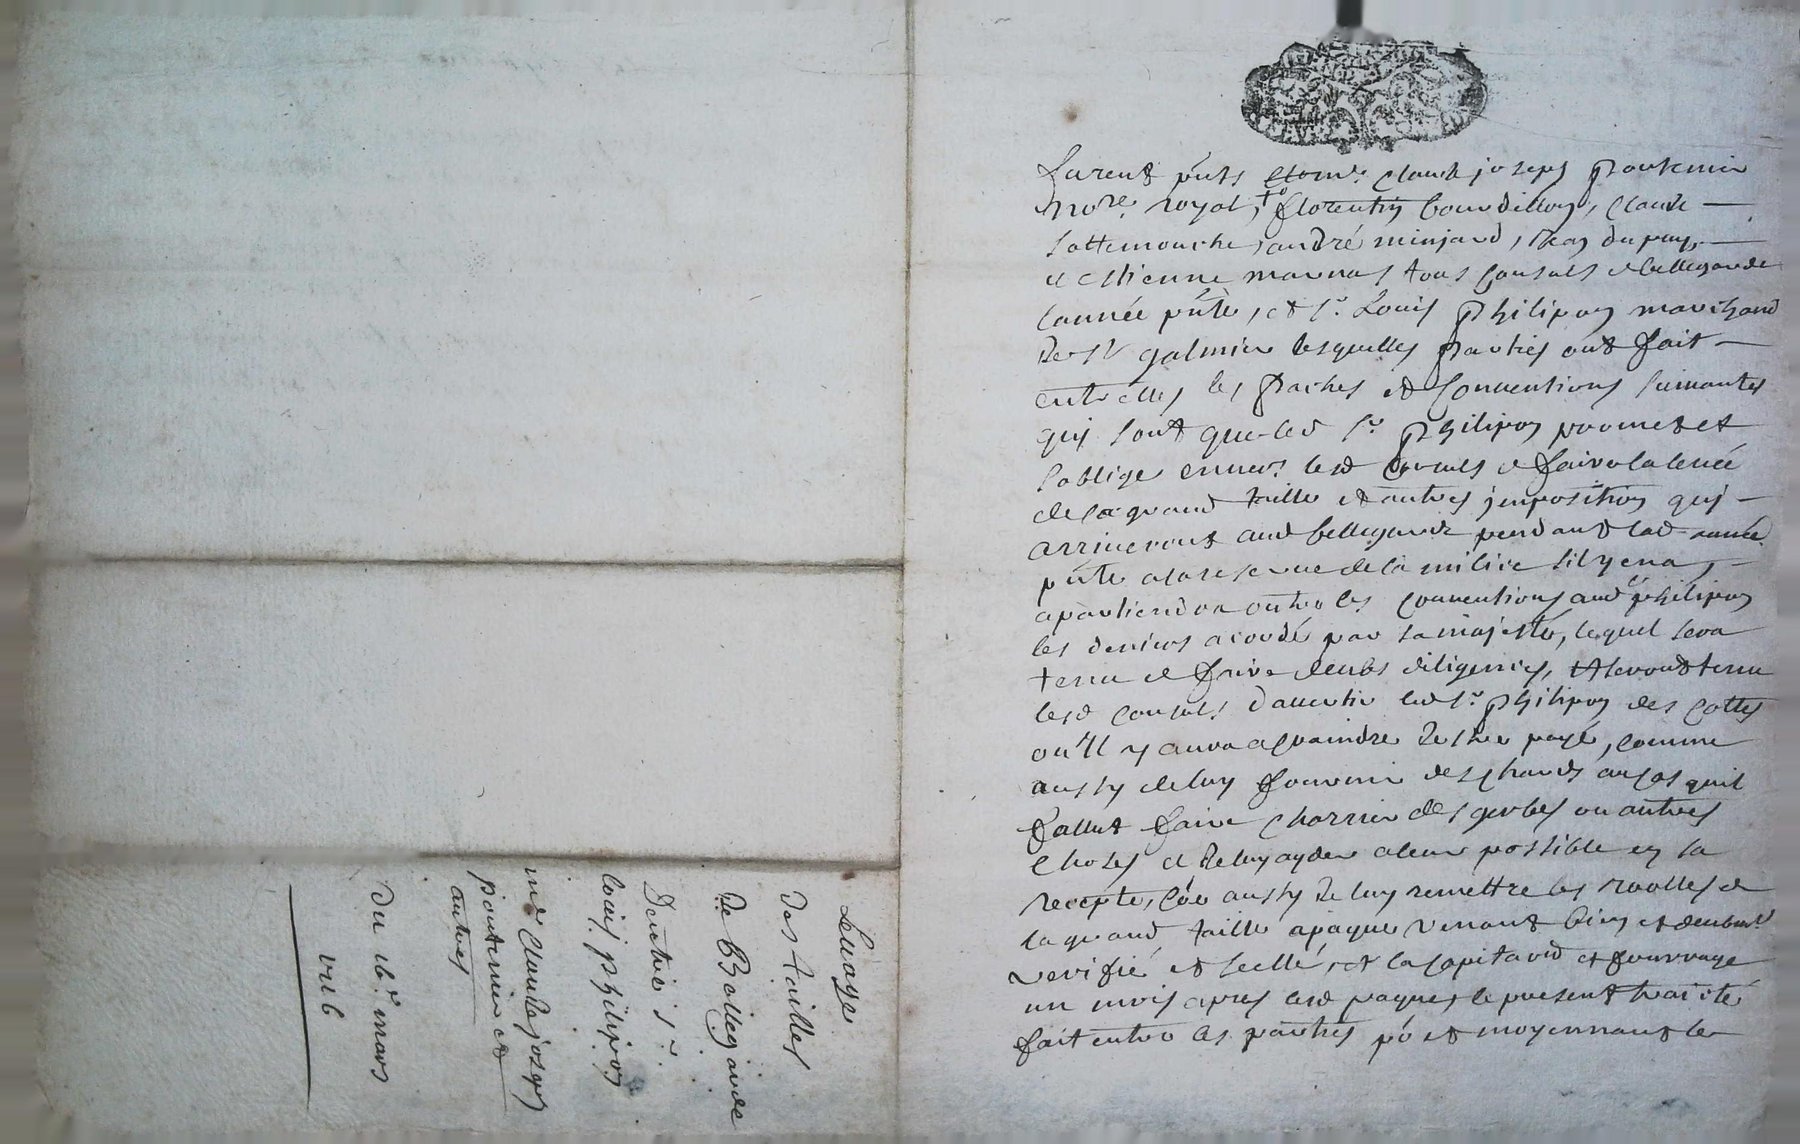 Furent pñts Me. Claude joseph Pontemier
nore. royal, Florentin bourdillon, Claude
lattemouche, andré minjard, Jean dupuy,
et estienne marnas tous Consuls de bellegarde
lannée pñte, et sr. Louis Philipon marchand
de st galmier lesquelles parties ont fait
entrelles les paches et Conventions suivantes
qui sont que led sr. Philipon promet et
soblige envers lesd Consuls de faire la levée
de la grand taille et autres jmposition qui
arriveront aud bellegarde pendant lad année
pñte a la reserve de la milice sil y en a,
apartiendra outre les Conventions aud sr philipon
les deniers acordé par sa majesté, lequel sera
tenu de faire deubs diligences, et seront tenu
lesd Consuls davertir led sr. Philipon des Cottes
ou Il y aura a craindre destre payé, comme
aussy de luy fournir des chards au cas quil
fallut faire charrier des gerbes ou autres
choses et de luy ayder a leur possible en sa
recepte, Cõe aussy de luy remettre les roolles de
la grand taille a paque venant bien et deubmt
verifié et scellé, et la Capitation et fourrage
un mois apres lesd paques le present traicté
fait entre les parties põ et moyennant le
Levaye
des tailles
de Bellegarde
Dentre sr.
louis philipon
me Claude joseph
pontemier et
autres
Du 16e mars